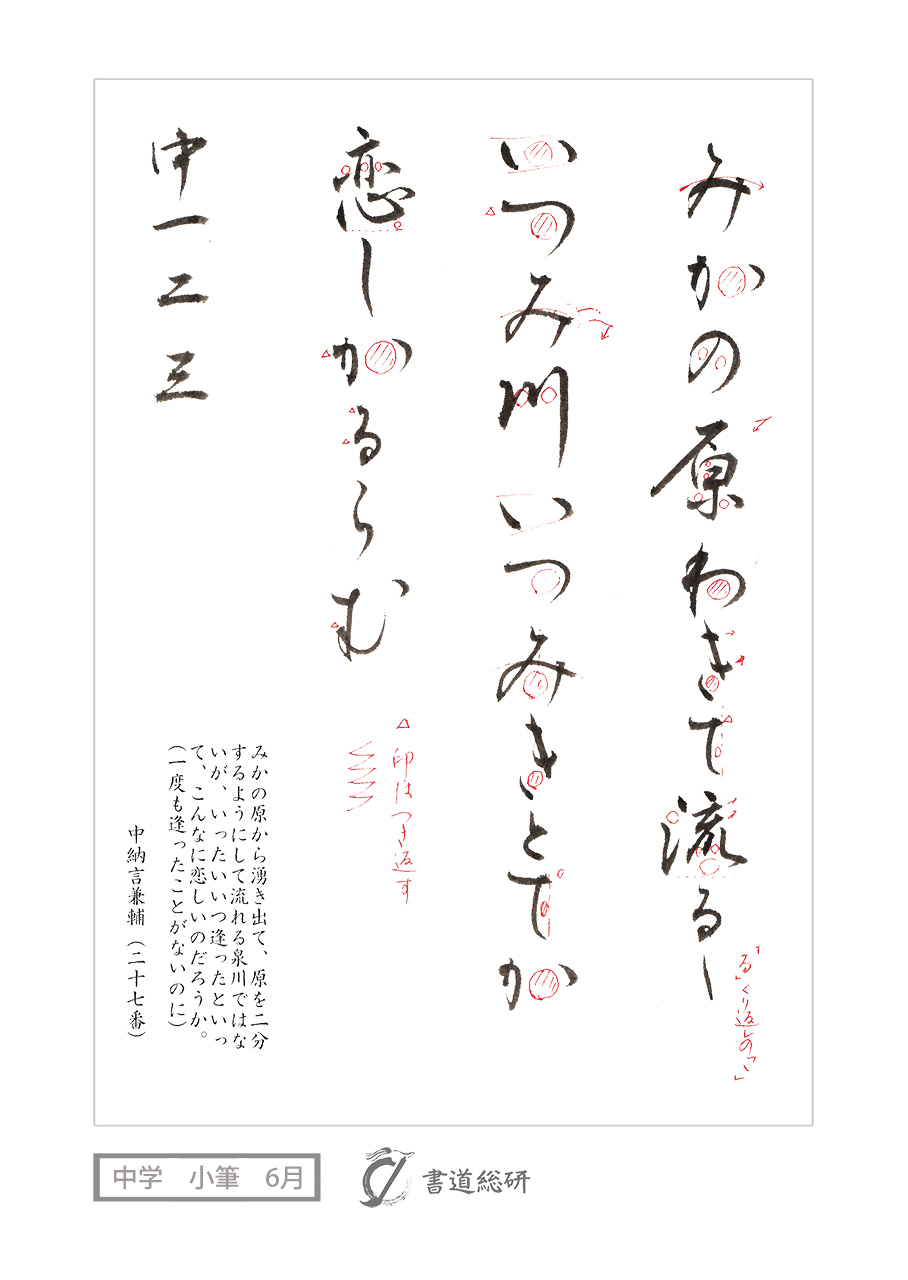 みかの原わきて流るゝ
「る」くり返しの「ゝ」
いつみ川いつみきとてか
恋しかるらむ
△印はつき返す
中一二三
みかの原から湧き出て、原を二分
するようにして流れる泉川ではな
いが、いったいいつ逢ったといっ
て、こんなに恋しいのだろうか。
（一度も逢ったことがないのに）
中納言兼輔（二十七番）
中学　小筆　6月
書道総研